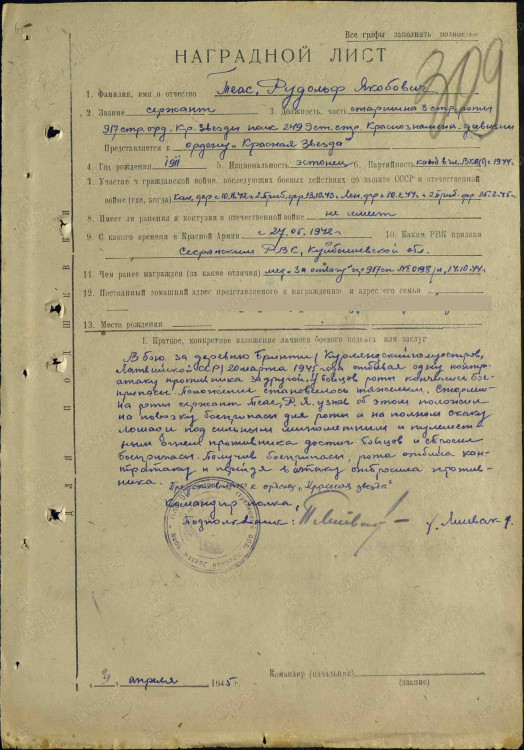 Все графы заполнять полностью
НАГРАДНОЙ ЛИСТ
309
1. Фамилия, имя и отчество Теас, Рудольф Якобович
2. Звание сержант 3. Должность, часть старшина 3 стр. роты
917 стр. орд. Кр. Звезды полк 249 Эст. стр. Краснознамен. дивизии
Представляется к ордену "Красная Звезда"
4. Год рождения 1911 5. Национальность эстонец 6. Партийность канд. в чл. ВКП(б) с 1944
7. Участие в гражданской войне, последующих боевых действиях по защите СССР и отечественной
войне (где, когда) Кал. фр с 10.11.42 2 Приб. фр 13.10.43, Лен. фр с 10.2.44 2 Приб. фр 25.2.45г.
8. Имеет ли ранения и контузии в отечественной войне не имеет
9. С какого времени в Красной Армии с 27.05.1942г 10. Каким РВК призван
РВК, Куйбышевской обл.
11. Чем ранее награжден (за какие отличия) мед. "За отвагу" пр 917 сп № 0198/н, 14.10.44г.
12. Постоянный домашний адрес представляемого к награждению и адрес его семьи
13. Место рождения
I. Краткое, конкретное изложение личного боевого подвига или заслуг
В бою за деревню (Курляндский полуостров,
Латвийской ССР) 20 марта 1945 года отбивая одну контр-
атаку противника за другой, у бойцов роты кончились бое-
припасы. Положение становилось тяжелым. Старши-
на роты сержант Теас, Р.Я. узнав об этом положил
на повозку боеприпасы для роты и на полном скаку
лошади под сильным минометным и пулемет-
ным огнем противника достиг бойцов и сбросил
боеприпасы. Получив боеприпасы, рота отбила кон-
тратаку и перейдя в атаку отбросила против-
ника. Представляется к ордену "Красная Звезда"
Командир полка,
Подполковник:
9 апреля 1945г.
Командир (начальник)
(звание)